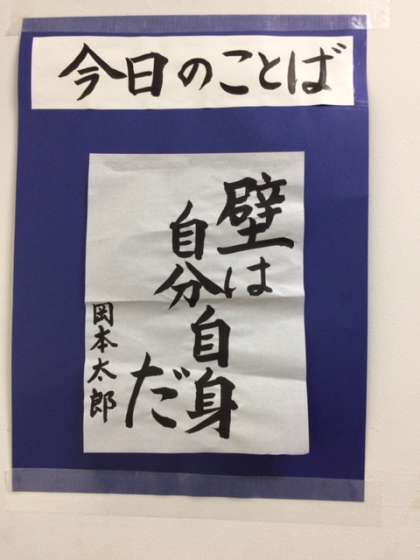 今日のことば
壁は
自分自身
だ
岡本太郎